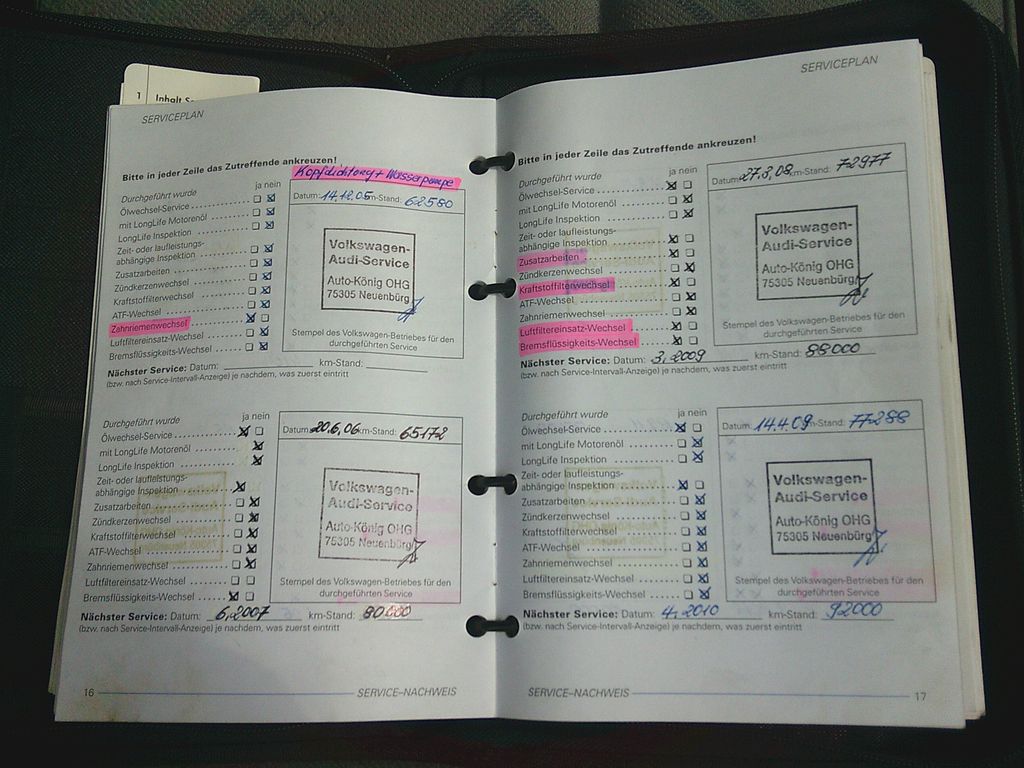 1 Inhalt
SERVICEPLAN
Bitte in jeder Zeile das Zutreffende ankreuzen!
Kopfdichtung + Wasserpumpe
Durchgeführt wurde ja nein
Ölwechsel-Service
mit LongLife Motorenöl
LongLife Inspektion
Zeit- oder laufleistungs-
abhängige Inspektion
Zusatzarbeiten
Zündkerzenwechsel
Kraftstoffilterwechsel
ATF-Wechsel
Zahnriemenwechsel
Luftfiltereinsatz-Wechsel
Bremsflüssigkeits-Wechsel
Datum: 14.12.05 km-Stand: 62580
Volkswagen-
Audi-Service
Auto-König OHG
75305 Neuenbürg
Stempel des Volkswagen-Betriebes für den
durchgeführten Service
Nächster Service: Datum: km-Stand:
(bzw. nach Service-Intervall-Anzeige) je nachdem, was zuerst eintritt
Durchgeführt wurde ja nein
Ölwechsel-Service
mit LongLife Motorenöl
LongLife Inspektion
Zeit- oder laufleistungs-
abhängige Inspektion
Zusatzarbeiten
Zündkerzenwechsel
Kraftstoffilterwechsel
ATF-Wechsel
Zahnriemenwechsel
Luftfiltereinsatz-Wechsel
Bremsflüssigkeits-Wechsel
Datum: 20.6.06 km-Stand: 65172
Volkswagen-
Audi-Service
Auto-König OHG
75305 Neuenbürg
Stempel des Volkswagen-Betriebes für den
durchgeführten Service
Nächster Service: Datum: 6.2007 km-Stand: 80000
(bzw. nach Service-Intervall-Anzeige) je nachdem, was zuerst eintritt
16 SERVICE–NACHWEIS
SERVICEPLAN
Bitte in jeder Zeile das Zutreffende ankreuzen!
Durchgeführt wurde ja nein
Ölwechsel-Service
mit LongLife Motorenöl
LongLife Inspektion
Zeit- oder laufleistungs-
abhängige Inspektion
Zusatzarbeiten
Zündkerzenwechsel
Kraftstoffilterwechsel
ATF-Wechsel
Zahnriemenwechsel
Luftfiltereinsatz-Wechsel
Bremsflüssigkeits-Wechsel
Datum: 27.3.08 km-Stand: 72977
Volkswagen-
Audi-Service
Auto-König OHG
75305 Neuenbürg
Stempel des Volkswagen-Betriebes für den
durchgeführten Service
Nächster Service: Datum: 3.2009 km-Stand: 88000
(bzw. nach Service-Intervall-Anzeige) je nachdem, was zuerst eintritt
Durchgeführt wurde ja nein
Ölwechsel-Service
mit LongLife Motorenöl
LongLife Inspektion
Zeit- oder laufleistungs-
abhängige Inspektion
Zusatzarbeiten
Zündkerzenwechsel
Kraftstoffilterwechsel
ATF-Wechsel
Zahnriemenwechsel
Luftfiltereinsatz-Wechsel
Bremsflüssigkeits-Wechsel
Datum: 14.4.09 km-Stand: 77288
Volkswagen-
Audi-Service
Auto-König OHG
75305 Neuenbürg
Stempel des Volkswagen-Betriebes für den
durchgeführten Service
Nächster Service: Datum: 4.2010 km-Stand: 92000
(bzw. nach Service-Intervall-Anzeige) je nachdem, was zuerst eintritt
SERVICE–NACHWEIS 17